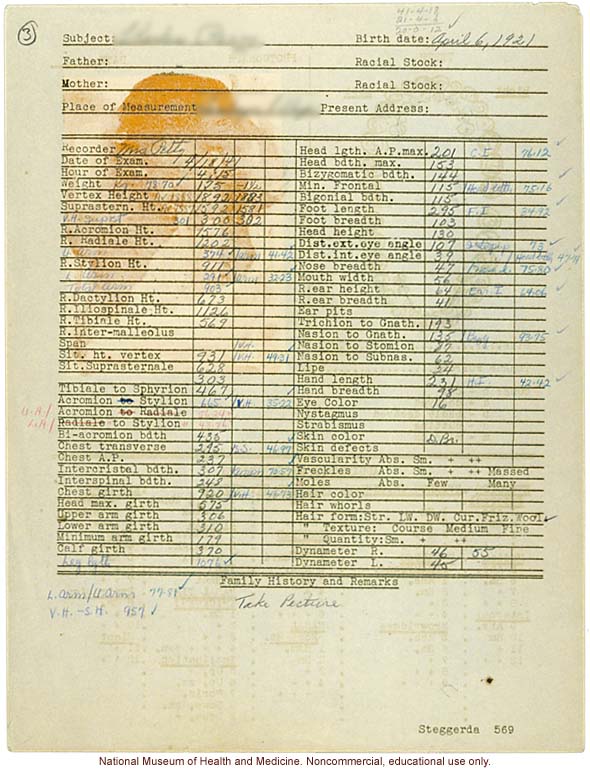 3
41-4-18
21-4-6
20-0-12
Subject: Birth date: April 6, 1921
Father: Racial Stock:
Mother: Racial Stock:
Place of Measurement Present Address:
Recorder
Date of Exam. 4/18/41
Hour of Exam. 4:15
Weight Kg 78.70 175
Vertex Height 1892 1883
Suprastern. Ht. 1592 1581
V.H.-Suprst 301 300 302
R.Acromion Ht. 1576
R. Radiale Ht. 1202
U. Arm 374 41.42
R.Stylion Ht. 911
L. Arm 291 32.23
Total arm 903
R.Dactylion Ht. 673
R.Iliospinale Ht. 1126
R.Tibiale Ht. 569
R.inter-malleolus
Span /V.H.
Sit. ht. vertex 931 /V.H. 49.21
Sit.Suprasternale 628
303
Tibiale to Sphyrion 467
Acromion to Stylion 665 /V.H. 35.22
U.A./ Acromion to Radiale
L.A./ Radiale to Stylion
Bi-acromion bdth 436
Chest transverse 295 46.97
Chest A.P. 237
Intercristal bdth. 307 70.57
Interspinal bdth. 248
Chest girth 920 /V.H. 48.73
Head max. girth 575
Upper arm girth 306
Lower arm girth 310
Minimum arm girth 179
Calf girth 370
Leg lgth 1076
Head lgth. A.P.max. 201 C.I. 76.12
Head bdth. max. 153
Bizygomatic bdth. 144
Min. Frontal 115 75.16
Bigonial bdth. 115
Foot length 295 F.I. 34.92
Foot breadth 103
Head height 130
Dist.ext.eye angle 107 73
Dist.int.eye angle 39
Nose breadth 47 75.80
Mouth width 56
R.ear height 64 Ear I. 64.06
R.ear breadth 41
Ear pits
Trichion to Gnath. 193
Nasion to Gnath. 135 93.75
Nasion to Stomion
Nasion to Subnas. 62
Lips 24
Hand length 231 H.I. 42.42
Hand breadth 98
Eye Color 16
Nystagmus
Strabismus
Skin color D.Br.
Skin defects
Vascularity Abs. Sm. + ++
Freckles Abs. Sm. + ++ Massed
Moles Abs. Few Many
Hair color
Hair whorls
Hair form:Str. LW. DW. Cur.Friz.Wool
" Texture: Course Medium Fine
" Quantity:Sm. + ++
Dynameter R. 46 55
Dynameter L. 45
Family History and Remarks
L.arm/U.arm 77.81
V.H.-S.H. 957
Take Picture
Steggerda 569
National Museum of Health and Medicine. Noncommercial, educational use only.